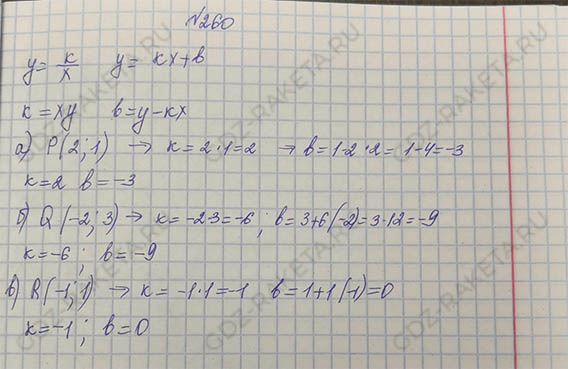 №260
y = к/x y = кx+b
к = xy b=y-кx
а) P(2; 1) → к = 2·1=2 → b = 1-2·2= 1-4=-3
к=2 b=-3
б) Q (-2; 3) → к = -2·3=-6; b = 3+6(-2)=3-12=-9
к=-6; b=-9
в) R(-1; 1) → к = -1·1=-1 b = 1+1(-1)=0
к=-1; b=0
GDZ-RAKETA.RU